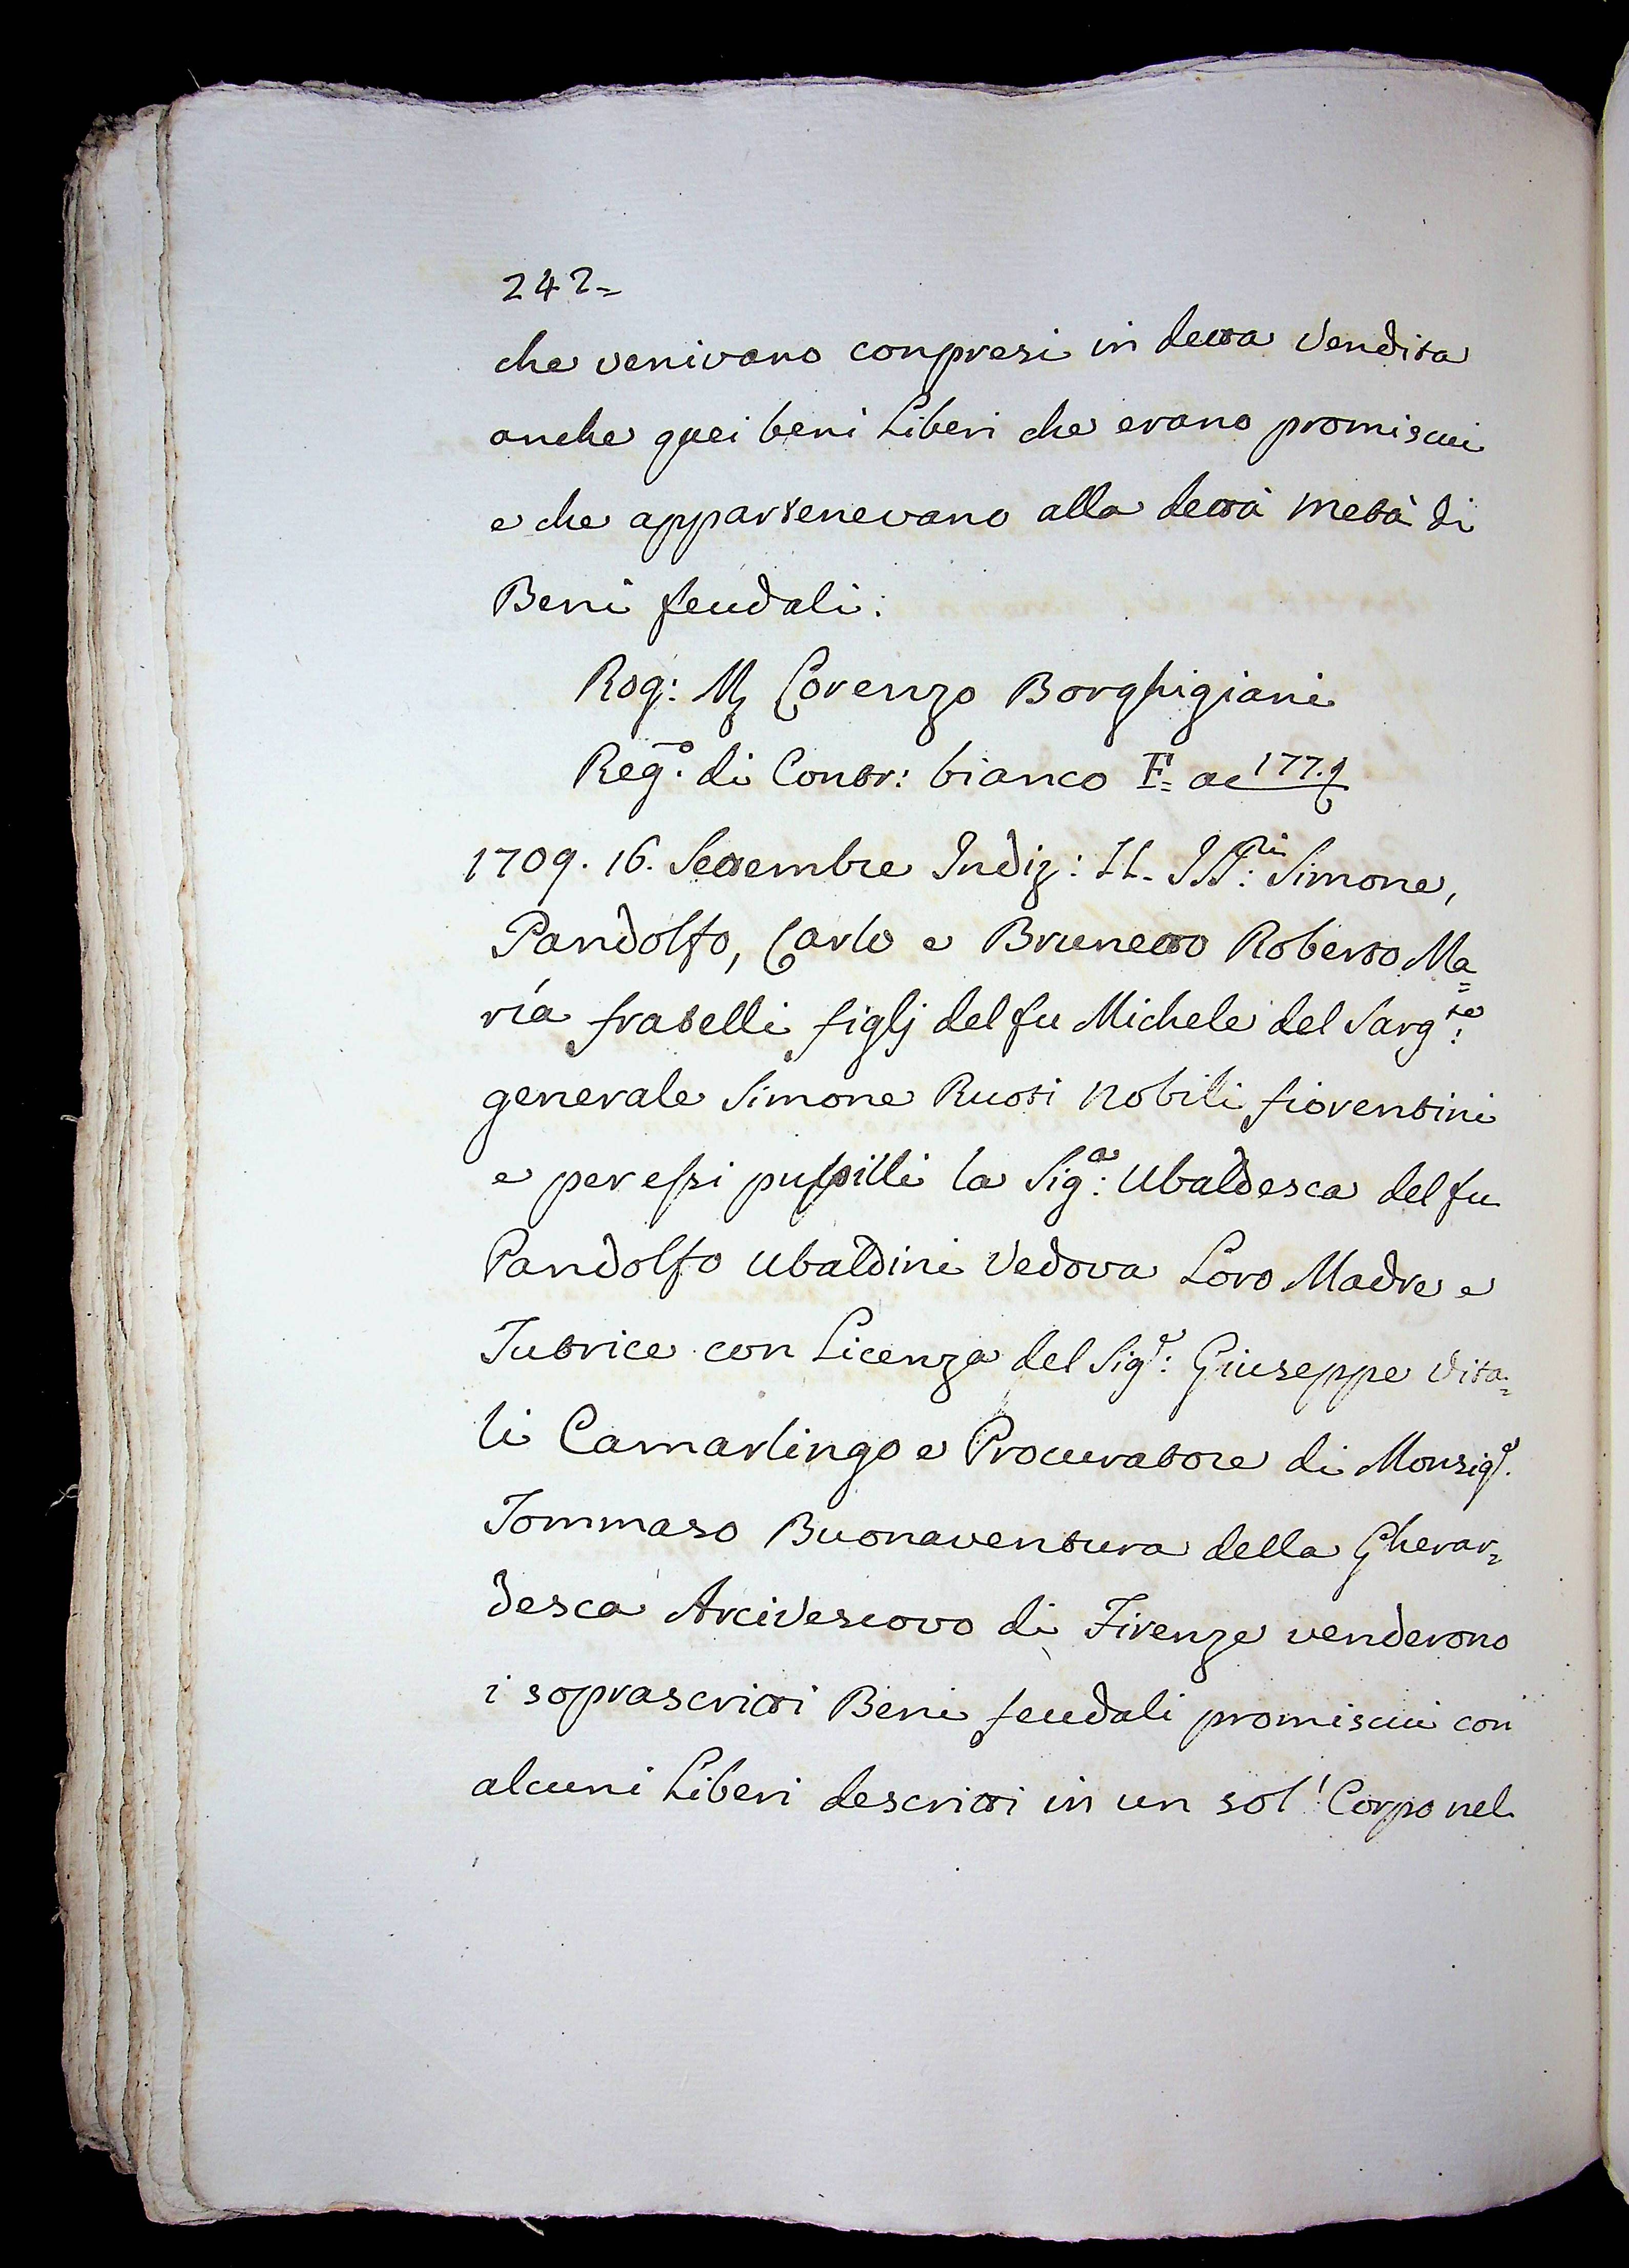 242=
che venivano conpresi in detta Vendita
anche quei beni Liberi che erano promiscui
e che appartenevano alla dettà metà di
Beni feudali:
Rog: M Lorenzo Borghigiani
Reg.º di Contr: bianco F= ac 177.
1709. 16. Settembre Indiz: II. I SS:ri Simone,
Pandolfo, Carlo e Brunetto Roberto Ma=
ria fratelli figlj del fu Michele del Sarg:te
generale Simone Ruoti Nobili fiorentini
e per essi puppilli la Sig:a Ubaldesca del fu
Pandolfo Ubaldini Vedova Loro Madre e
Tutrice con Licenza del Sig:e Giuseppe Vita=
li Camarlingo e Procuratore di Monsig.e
Tommaso Buonaventura della Gherar=
desca Arcivescovo di Firenze venderono
i soprascritti Beni feudali promiscui con
alcuni Liberi descritti in un sol' Corpo nel